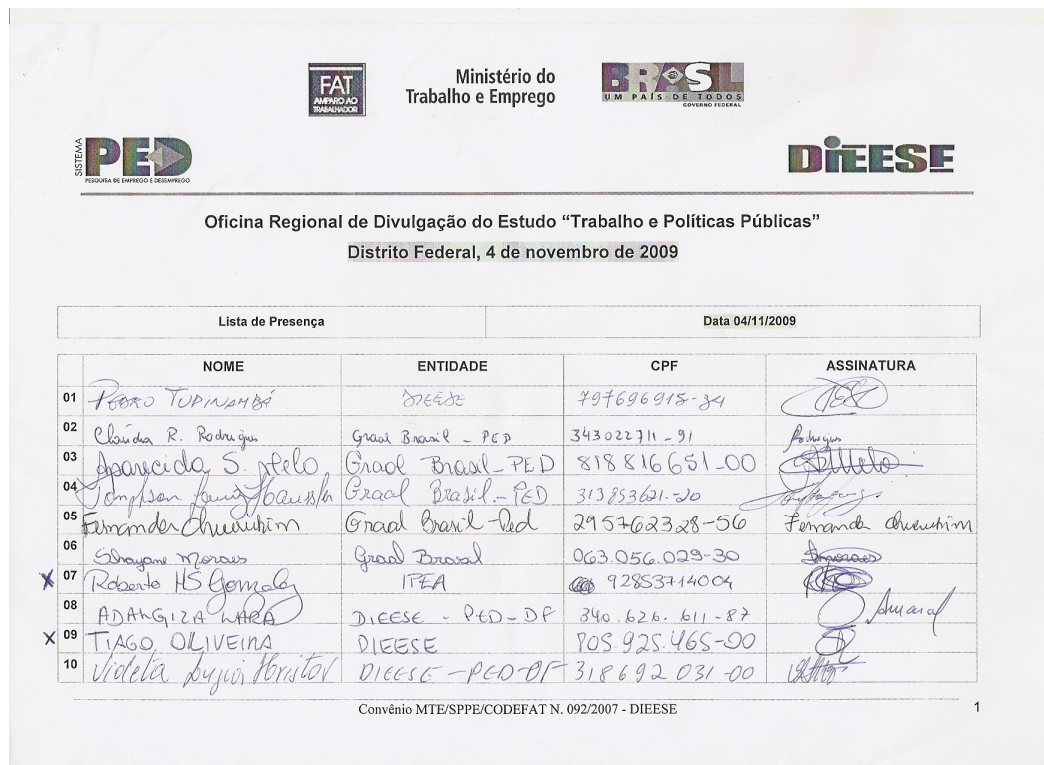 FAT
AMPARO AO
TRABALHADOR
Ministério do
Trabalho e Emprego
BRASIL
UM PAÍS DE TODOS
GOVERNO FEDERAL
SISTEMA
PED
PESQUISA DE EMPREGO E DESEMPREGO
DIEESE
Oficina Regional de Divulgação do Estudo “Trabalho e Políticas Públicas”
Distrito Federal, 4 de novembro de 2009
Lista de Presença Data 04/11/2009
NOME ENTIDADE CPF ASSINATURA
01 PEDRO TUPINAMBÁ DIEESE 797696915-34
02 Claudia R. Rodrigues Graal Brasil - PED 343022711-91 Rodrigues
03 Aparecida S. Melo Graal Brasil-PED 818816651-00
04 Graal Brasil.-PED 313853621-20
05 Fernanda Graal Brasil-Ped 295762328-56 Fernanda
06 Shayane Moraes Graal Brasil 063.056.029-30
X 07 Roberto HS Gonzalez IPEA 92853714004
08 ADALGIZA LARA DIEESE - PED-DF 340.626.611-87 Amaral
X 09 TIAGO OLIVEIRA DIEESE 805.925.465-00
10 DIEESE-PED-DF 318692031-00
Convênio MTE/SPPE/CODEFAT N. 092/2007 - DIEESE 1